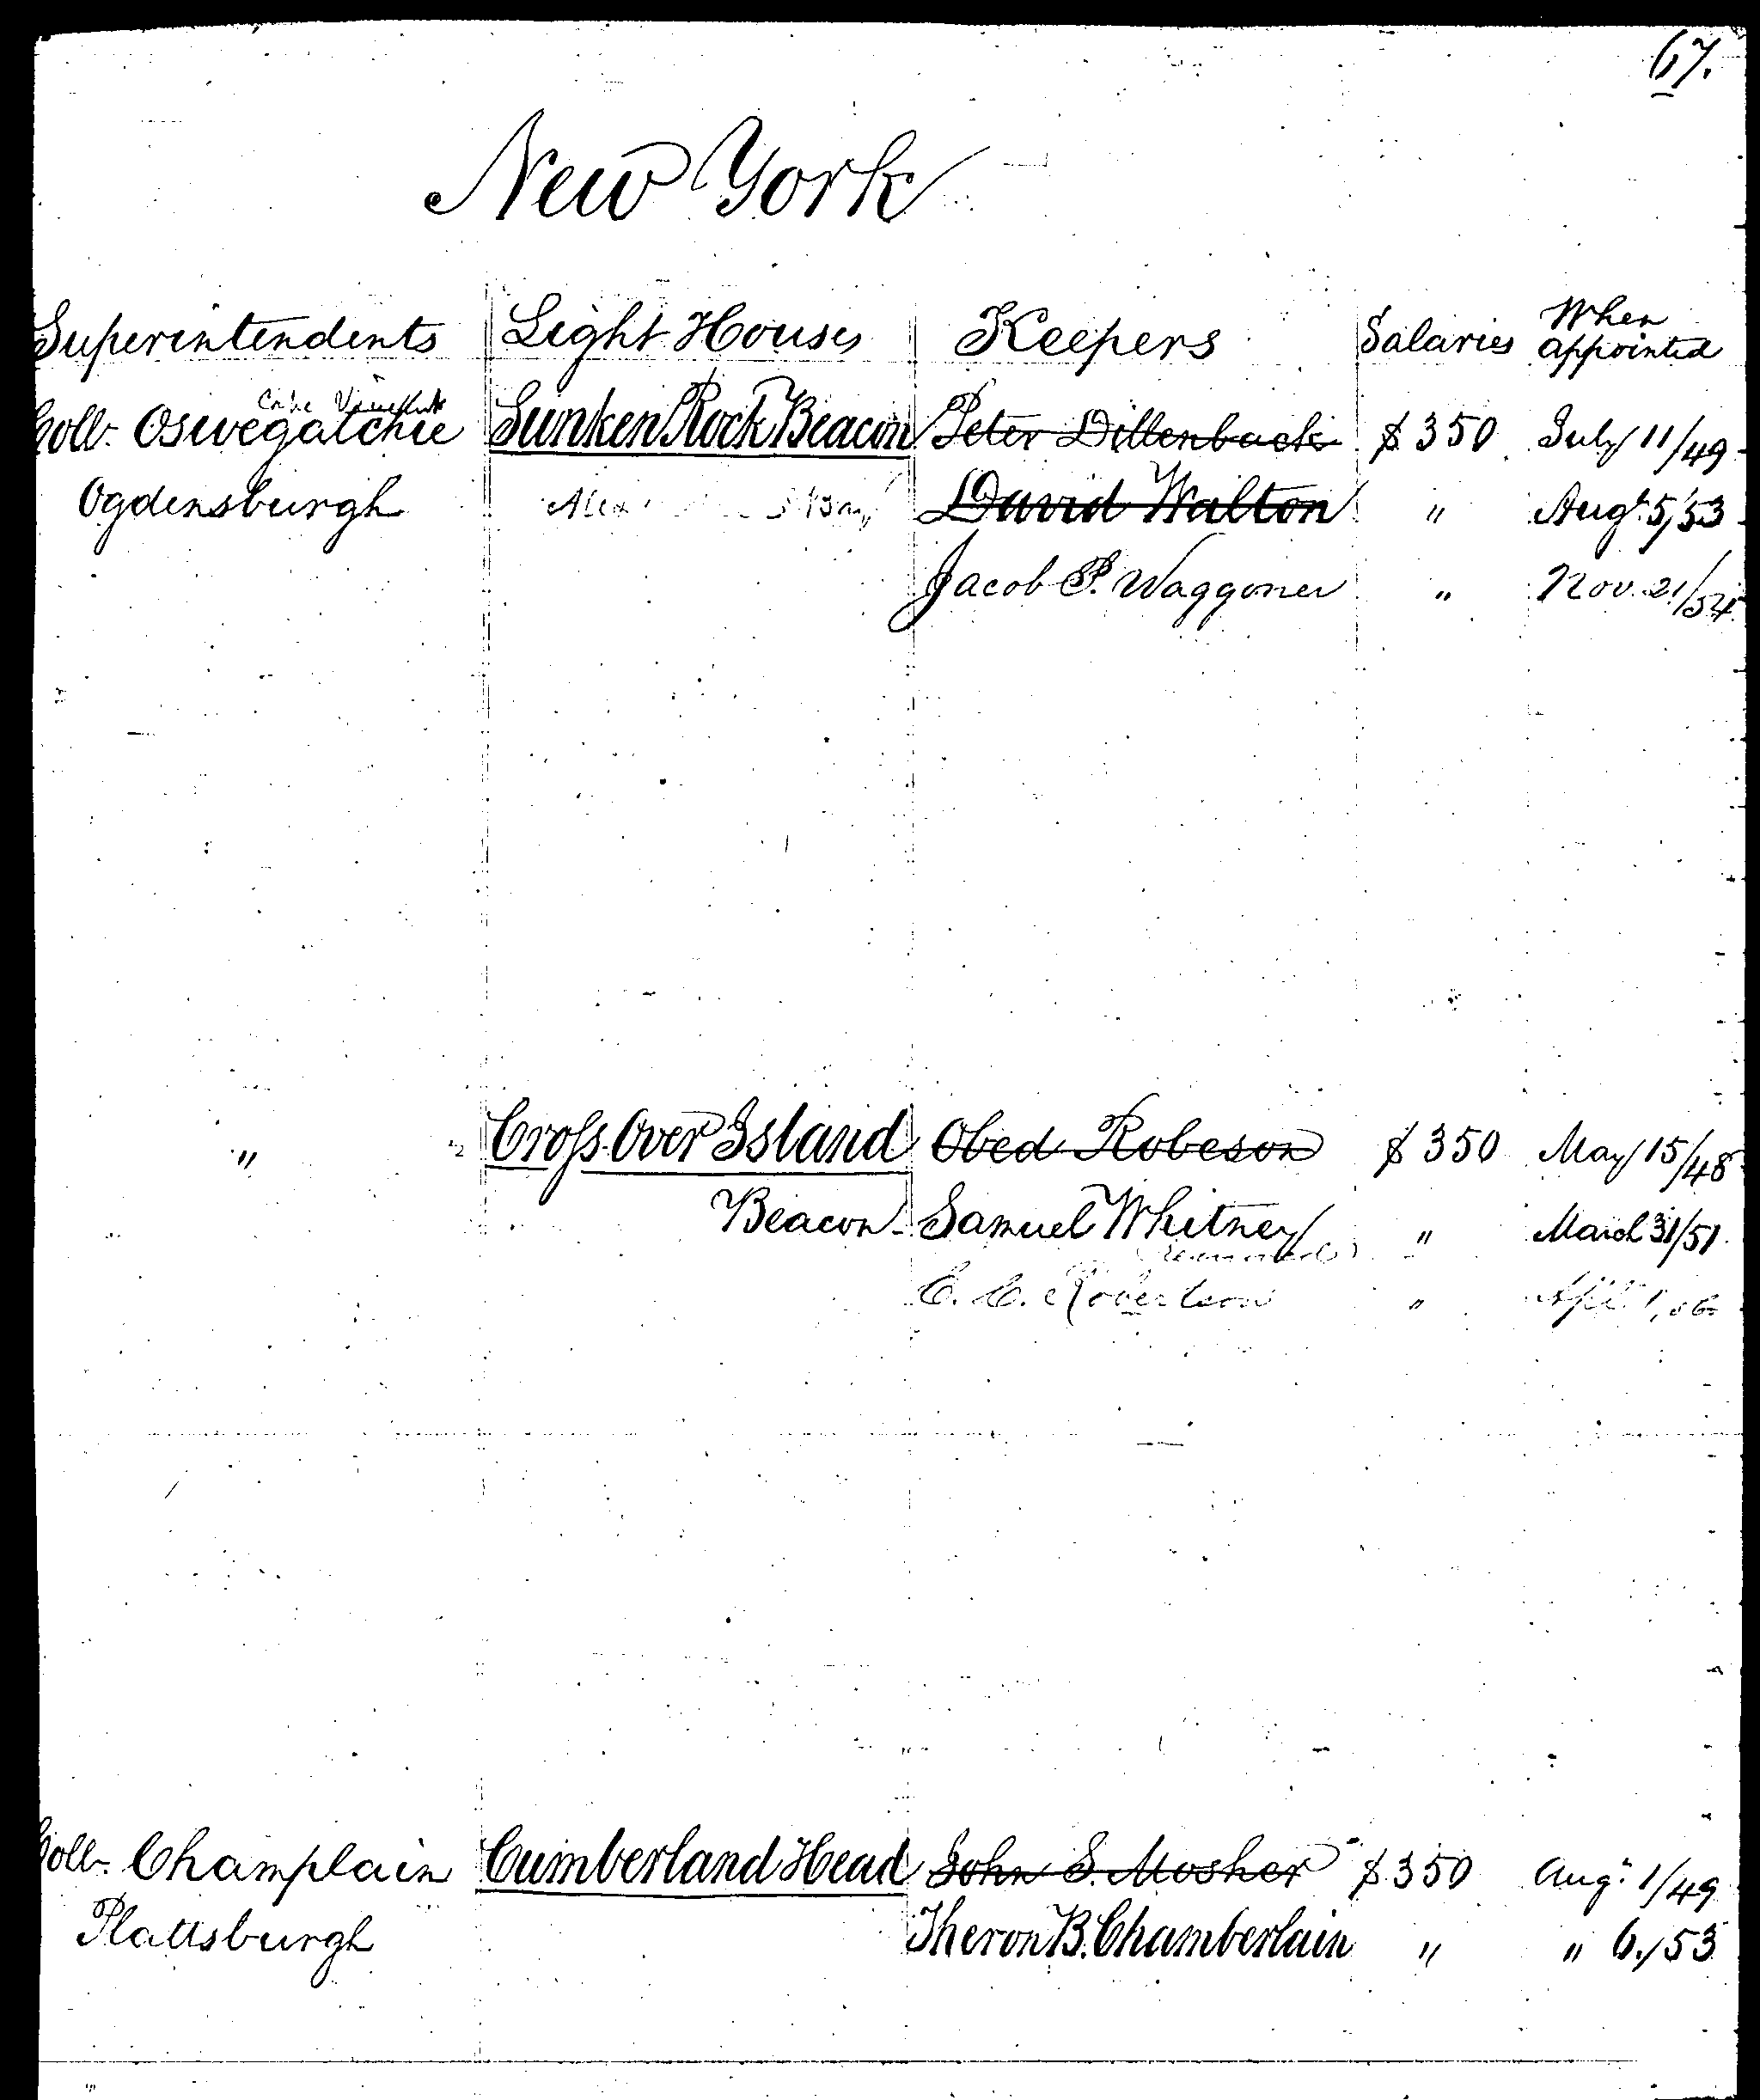 67.
New York
Superintendents Light Houses Keepers Salaries When appointed
Cape Vincent
Collr. Oswegatchie Sunken Rock Beacon Peter Dillenback $350 July 11/49
Ogdensburgh Alex Bay David Walton " Augt. 5/53
Jacob P. Waggoner " Nov. 21/54
" Cross Over Island Obed Robeson $350 May 15/48
Beacon Samuel Whitney " March 31/51
(removed)
C. C. Robertson " Apl. 1,
Collr. Champlain Cumberland Head John S. Mosher $350 Aug. 1/49
Plattsburgh Theron B. Chamberlain " " 6/53